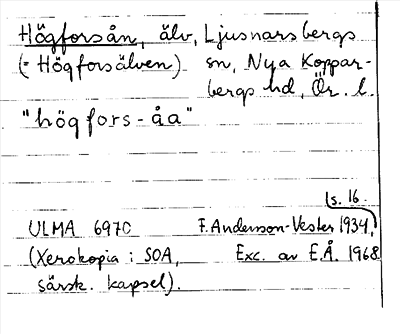 Högforsån, älv, Ljusnarsbergs
(= Högforsälven) sn, Nya Koppar-
bergs hd, Ör. l.
"högfors-åa"
s. 16.
ULMA 6970 F. Anderson-Vester 1934,
(Xerokopia i SOA, Exc. av E.Å. 1968
särsk. kapsel).